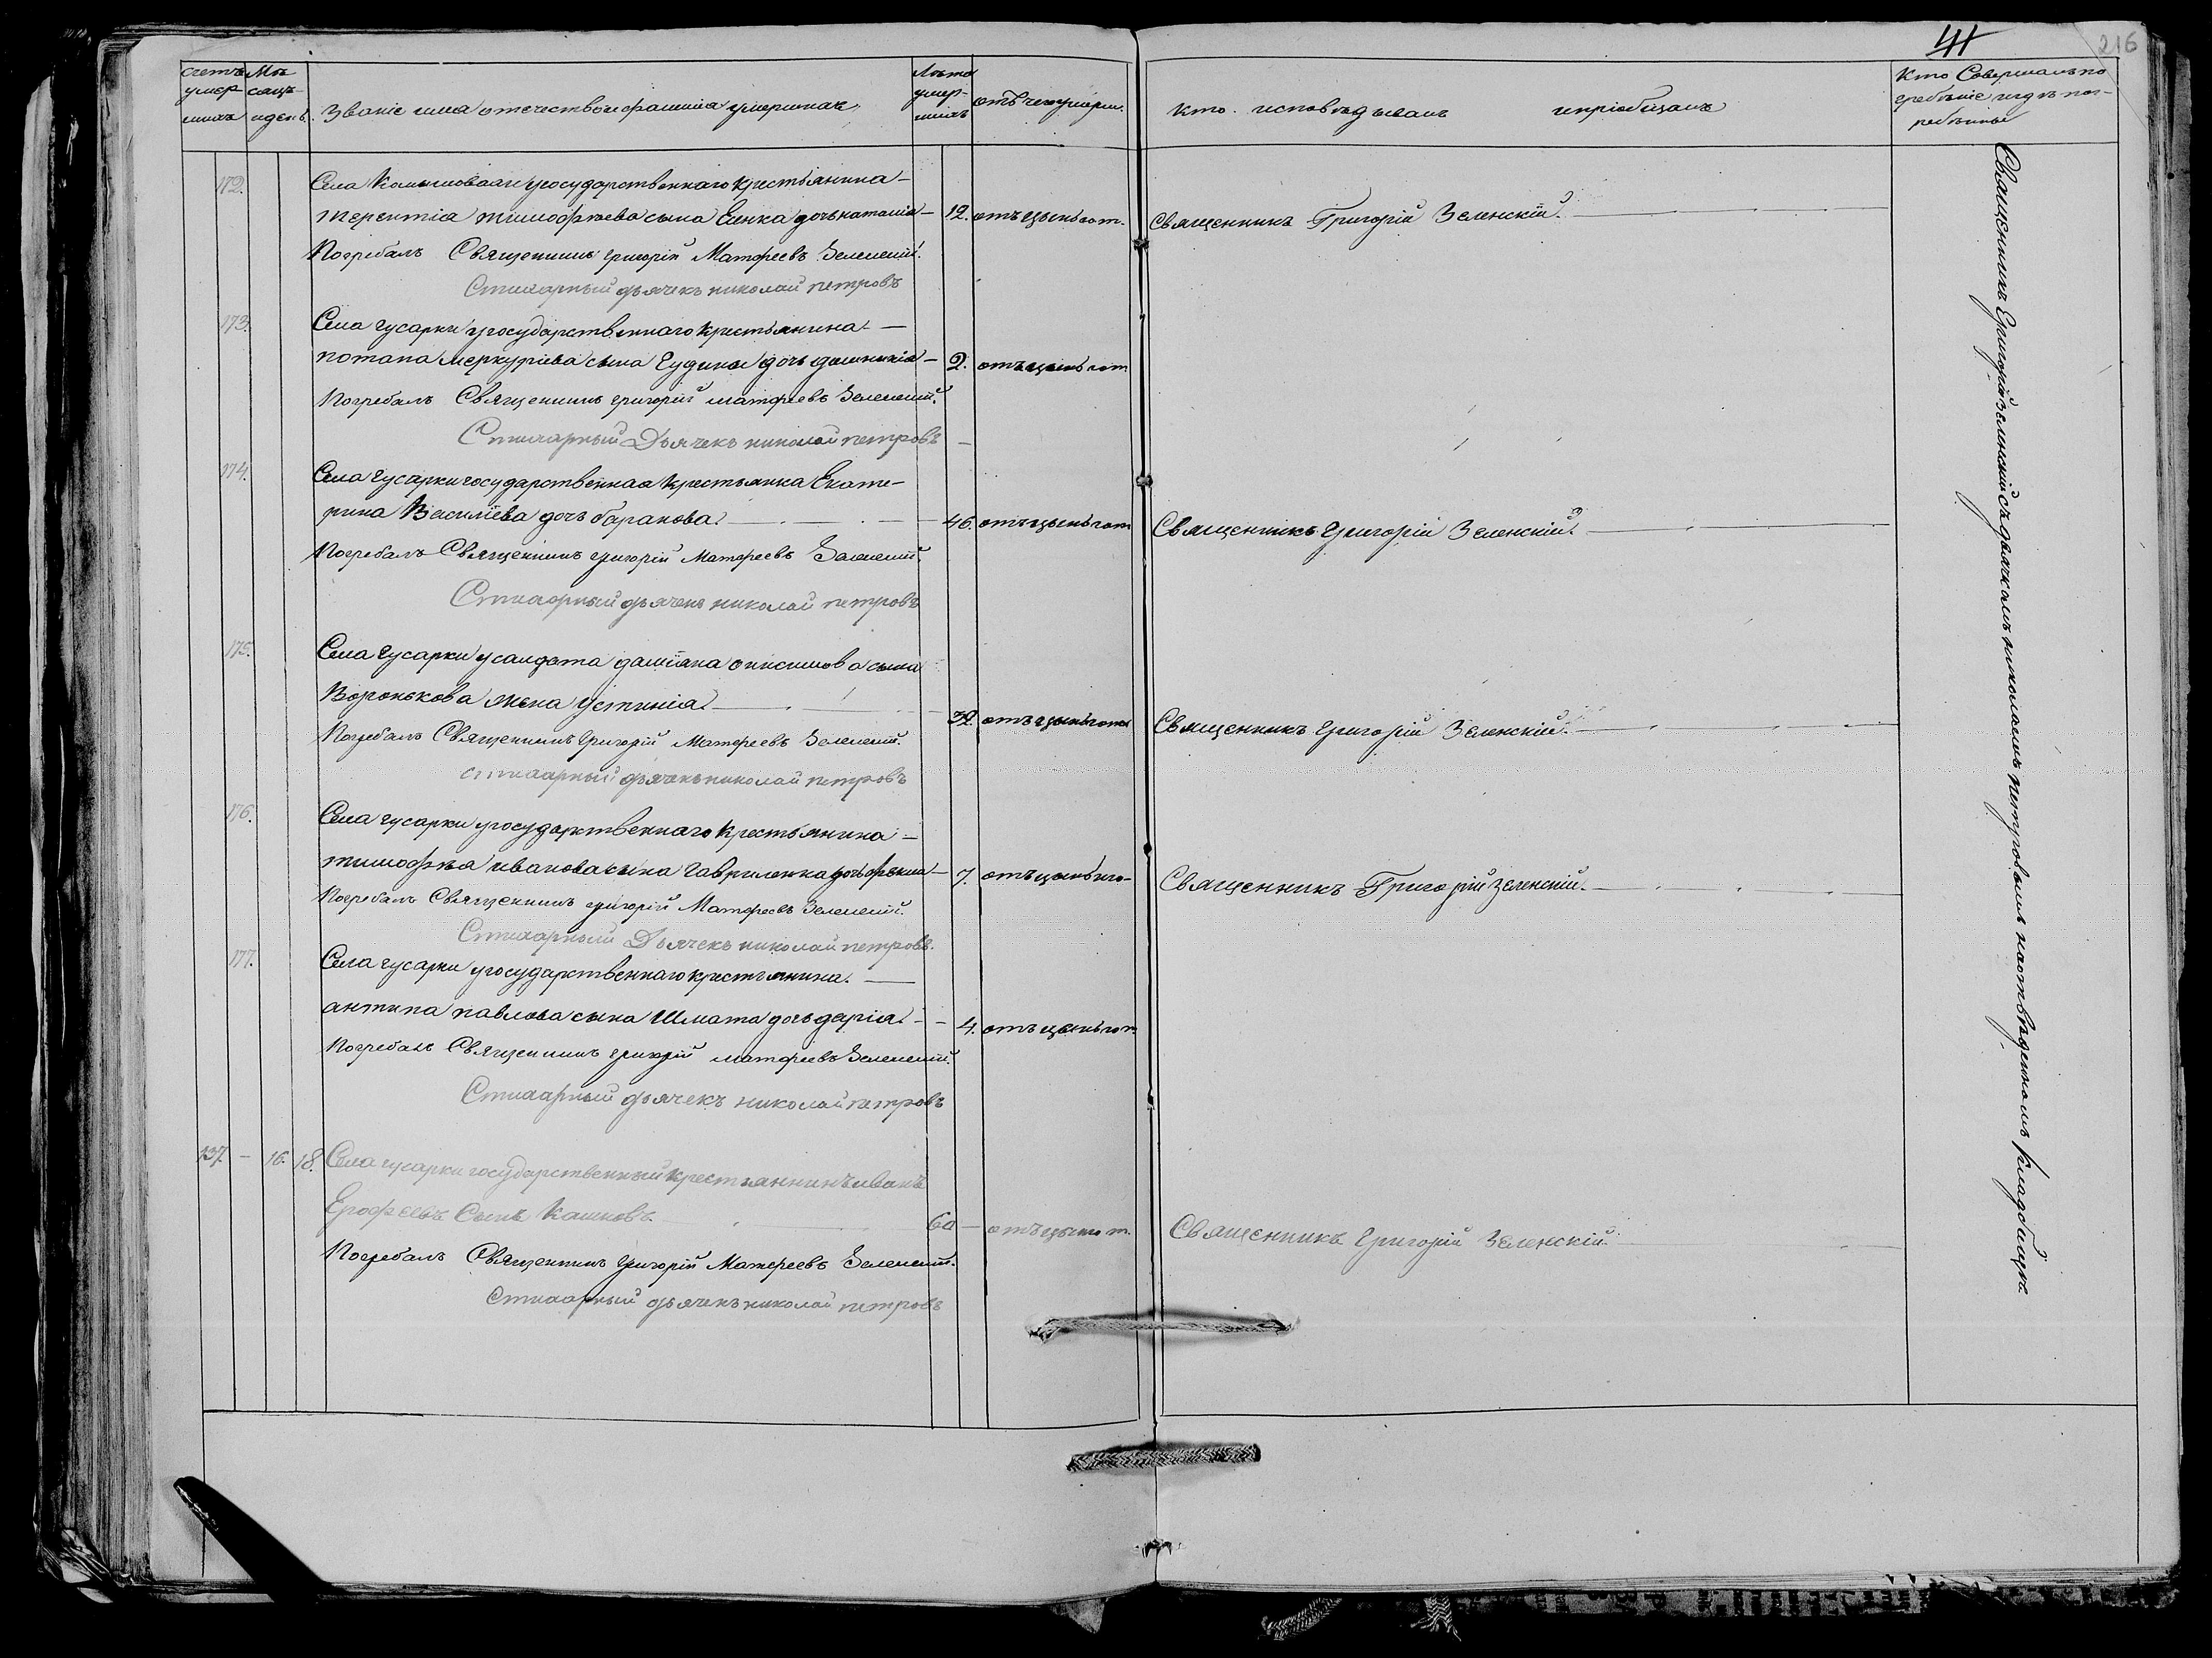 41
216
счетъ умер шихъ
Мѣ сяцъ и день.
Званіе имя отечество и фамилія умершихъ
Лѣта умер- шихъ
отъ чего умерли.
Кто исповѣдывалъ и пріобщалъ
Кто Совершалъ по гребеніе и гдѣ пог- ребенны
172.
Села Камышовахи у государственнаго крестьянина —
терентіа тимофѣева сына Енка дочь наталіа — 12. отъ цынгот. Священникъ Григорій Зеленскій.
Погребалъ Священникъ григорій Матфеевъ Зеленскій.
Стихарный дьячекъ николай петровъ
173.
Села гусарки у государственнаго крестьянина —
потапа меркуріева сына Гудина дочь домникіа — 2. отъ цынгот.
Погребалъ Священникъ григорій матфеевъ Зеленскій.
Стихарный Дьячекъ николай петровъ
174.
Села гусарки государственная крестьянка Екате-
рина Василіева дочь баранова — 46. отъ цынгот Священникъ Григорій Зеленскій.
Погребалъ Священникъ григорій Матфеевъ Зеленскій.
Стихарный дьячекъ николай петровъ
175.
Села гусарки у салдата даміана онисимова сына
Воронькова жена устиніа — отъ цынготи Священникъ Григорій Зеленскій.
Погребалъ Священникъ Григорій Матфеевъ Зеленскій.
стихарный дьячекъ николай петровъ
176.
Села гусарки у государственнаго крестьянина —
тимофѣя иванова сына Гавриленка дочь — 7. отъ цынго- Священникъ Григорій Зеленскій.
Погребалъ Священникъ григорій Матфеевъ Зеленскій.
Стихарный Дьячекъ николай петровъ.
177.
Села гусарки у государственнаго крестьянина. —
антипа павлова сына Шмата дочь даріа. — 4. отъ цынгот.
Погребалъ Священникъ григорій матфеевъ Зеленскій.
Стихарный дьячекъ николай петровъ
137. — 16. 18. Села гусарки государственный крестьянинъ иванъ
Ерофеевъ Сынъ Кашковъ. 60 — отъ цынгот. Священникъ Григорій Зеленскій.
Погребалъ Священникъ Григорій Матфеевъ Зеленскій.
Стихарный дьячекъ николай петровъ
Священникъ Григорій зеленскій съ дьячкомъ николаемъ петровымъ на отведенномъ кладбищѣ.